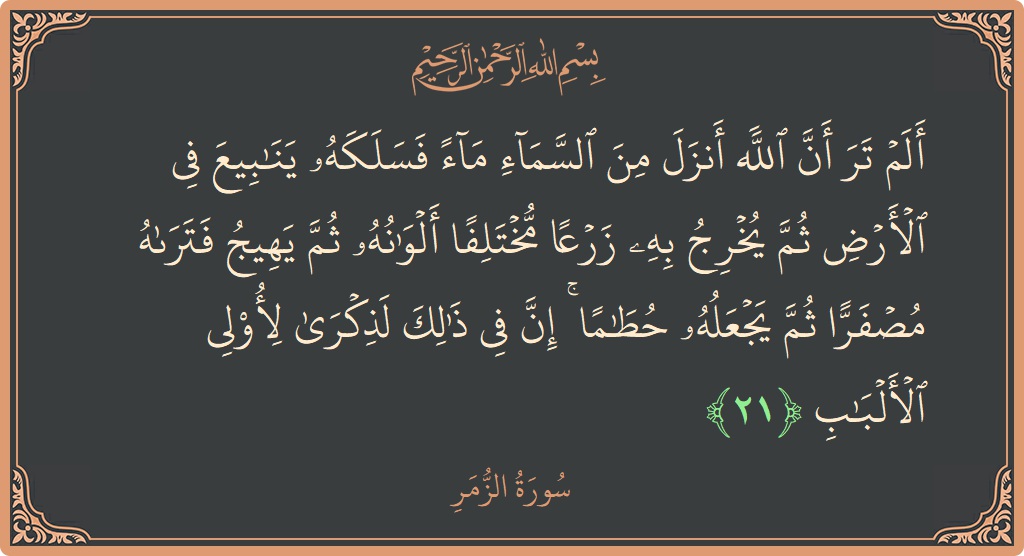 بِسْمِ اللهِ الرَّحْمٰنِ الرَّحِيْمِ
أَلَمۡ تَرَ أَنَّ ٱللَّهَ أَنزَلَ مِنَ ٱلسَّمَآءِ مَآءً فَسَلَكَهُۥ يَنَٰبِيعَ فِي
ٱلۡأَرۡضِ ثُمَّ يُخۡرِجُ بِهِۦ زَرۡعًا مُّخۡتَلِفًا أَلۡوَٰنُهُۥ ثُمَّ يَهِيجُ فَتَرَىٰهُ
مُصۡفَرًّا ثُمَّ يَجۡعَلُهُۥ حُطَٰمًاۚ إِنَّ فِي ذَٰلِكَ لَذِكۡرَىٰ لِأُوْلِي
ٱلۡأَلۡبَٰبِ ﴿٢١﴾
سُورَةُ الزُّمَرِ